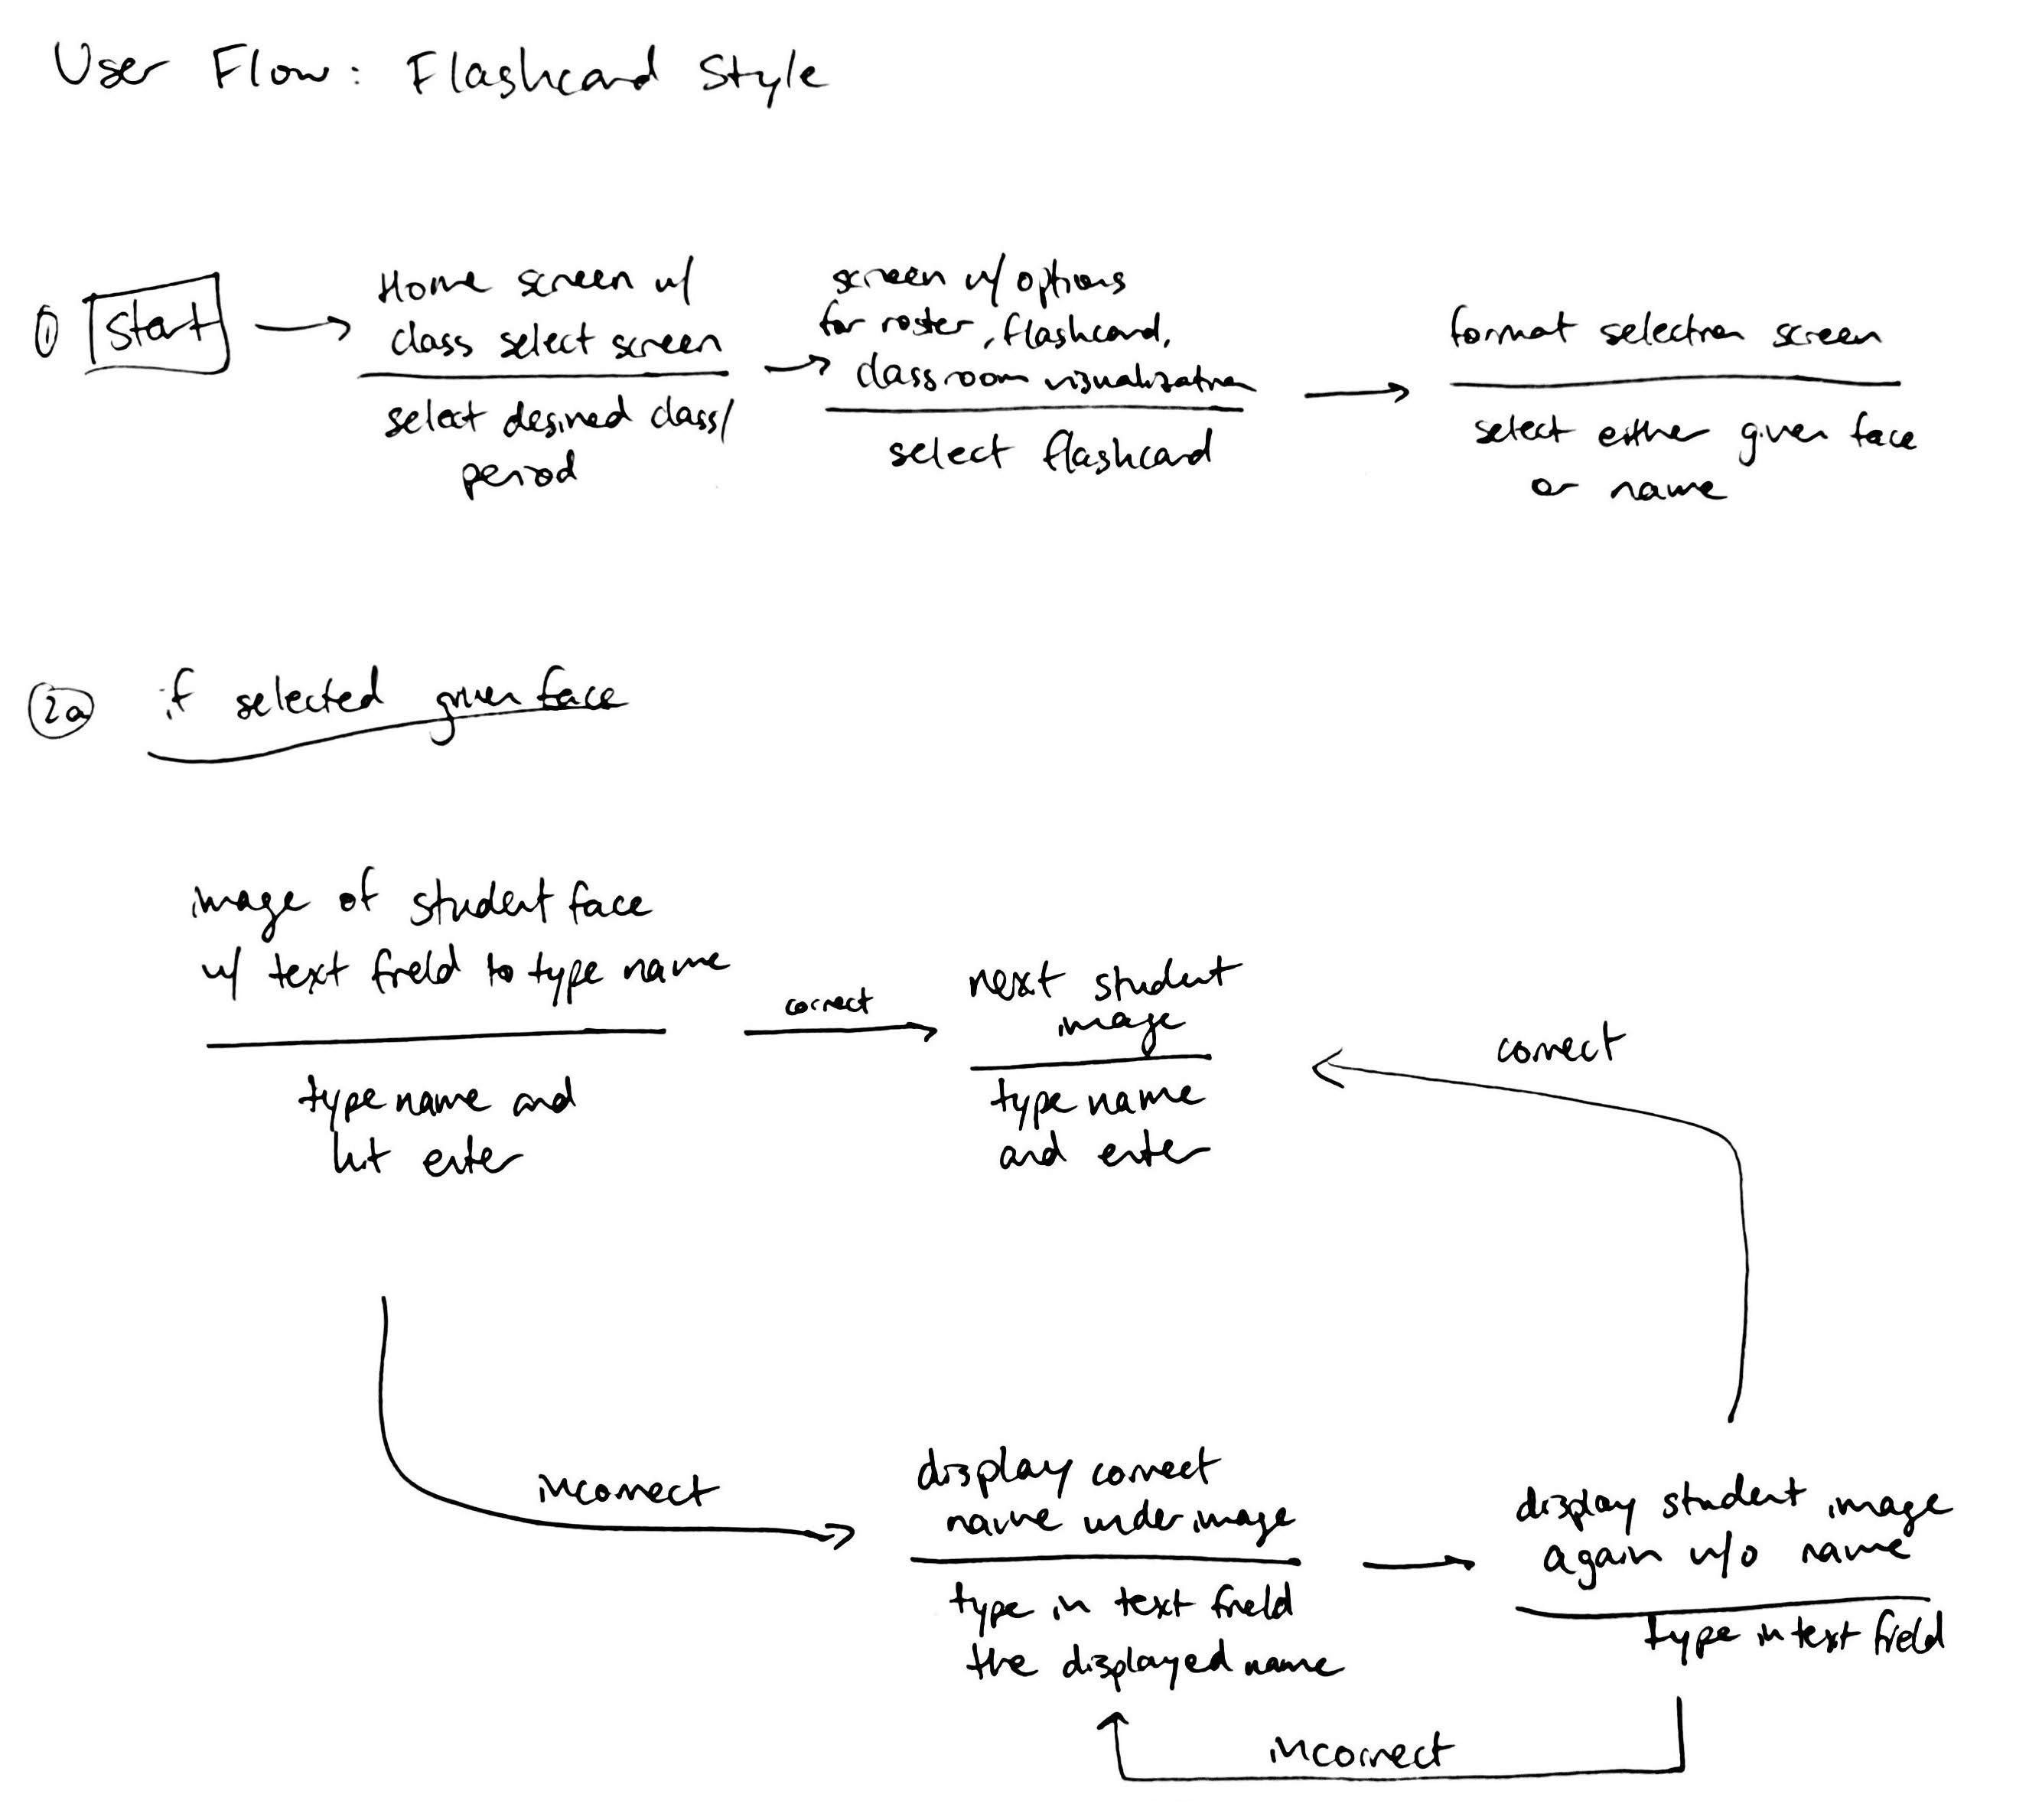 User Flow: Flashcard Style
① Start
Home screen w/
class select screen
select desired class/
period
screen w/ options
for roster, flashcard,
classroom visualization
select flashcard
format selection screen
select either given face
or name
2a if selected given face
image of student face
w/ text field to type name
type name and
hit enter
correct
next student
image
type name
and enter
correct
incorrect
display correct
name under image
type in text field
the displayed name
display student image
again w/o name
type in text field
incorrect